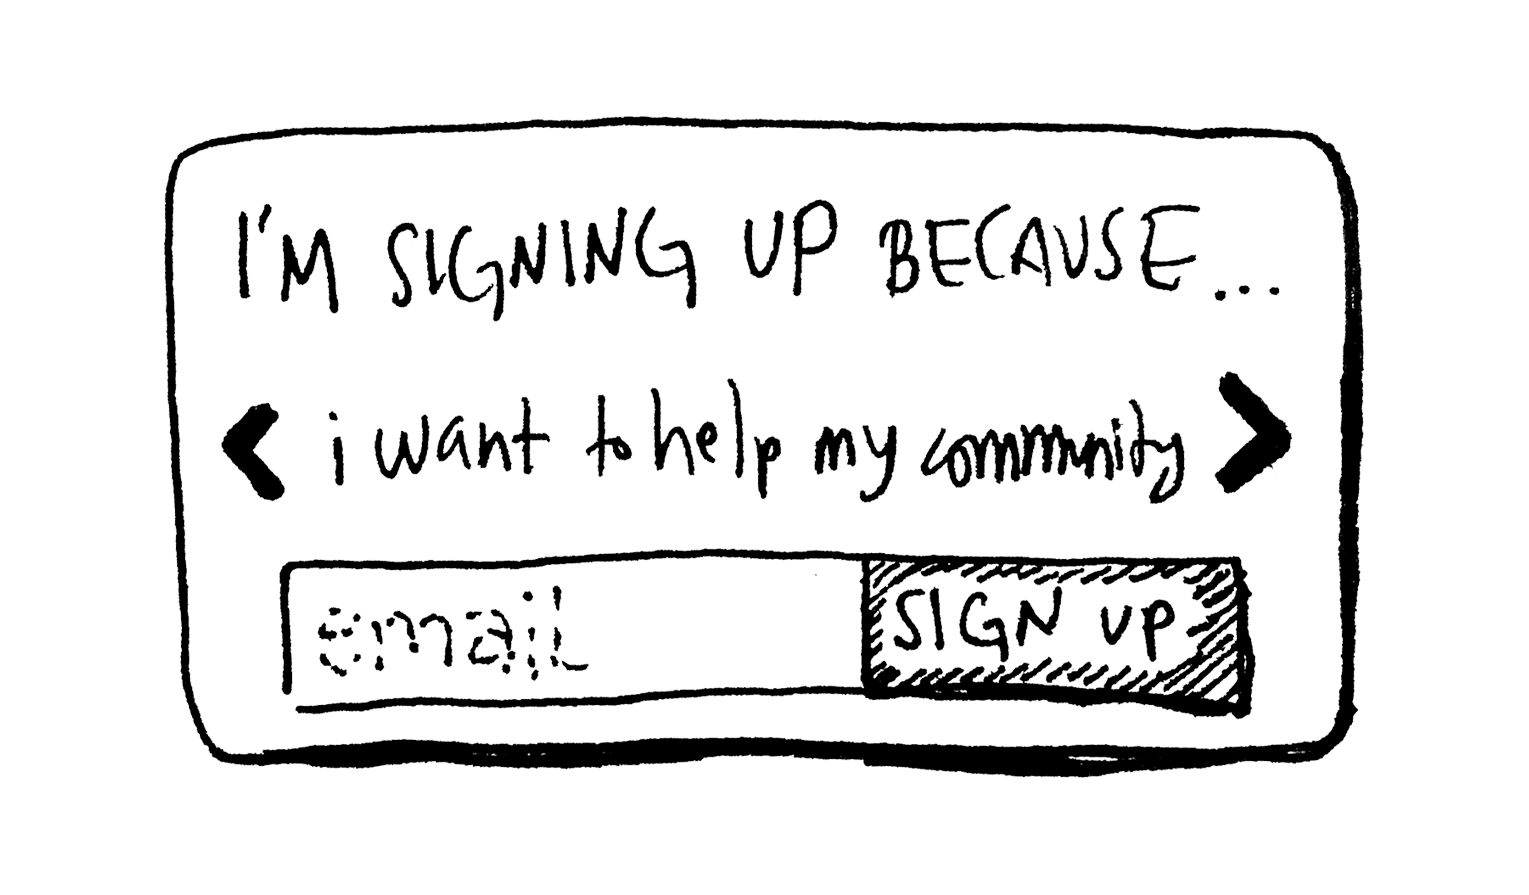 I'M SIGNING UP BECAUSE...
< i want to help my community >
email SIGN UP